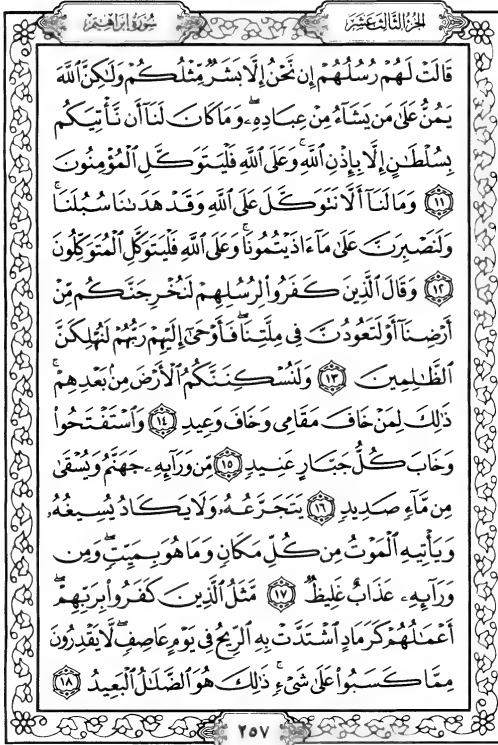 الجزء الثالث عشر
سورة إبراهيم
قَالَتْ لَهُمْ رُسُلُهُمْ إِن نَّحْنُ إِلَّا بَشَرٌ مِّثْلُكُمْ وَلَٰكِنَّ اللَّهَ
يَمُنُّ عَلَىٰ مَن يَشَاءُ مِنْ عِبَادِهِ ۖ وَمَا كَانَ لَنَا أَن نَّأْتِيَكُم
بِسُلْطَٰنٍ إِلَّا بِإِذْنِ اللَّهِ ۚ وَعَلَى اللَّهِ فَلْيَتَوَكَّلِ الْمُؤْمِنُونَ
﴿١١﴾ وَمَا لَنَا أَلَّا نَتَوَكَّلَ عَلَى اللَّهِ وَقَدْ هَدَىٰنَا سُبُلَنَا ۚ
وَلَنَصْبِرَنَّ عَلَىٰ مَا ءَاذَيْتُمُونَا ۚ وَعَلَى اللَّهِ فَلْيَتَوَكَّلِ الْمُتَوَكِّلُونَ
﴿١٢﴾ وَقَالَ الَّذِينَ كَفَرُوا لِرُسُلِهِمْ لَنُخْرِجَنَّكُم مِّنْ
أَرْضِنَا أَوْ لَتَعُودُنَّ فِى مِلَّتِنَا ۖ فَأَوْحَىٰ إِلَيْهِمْ رَبُّهُمْ لَنُهْلِكَنَّ
الظَّٰلِمِينَ ﴿١٣﴾ وَلَنُسْكِنَنَّكُمُ الْأَرْضَ مِنۢ بَعْدِهِمْ ۚ
ذَٰلِكَ لِمَنْ خَافَ مَقَامِى وَخَافَ وَعِيدِ ﴿١٤﴾ وَاسْتَفْتَحُوا
وَخَابَ كُلُّ جَبَّارٍ عَنِيدٍ ﴿١٥﴾ مِّن وَرَآئِهِ جَهَنَّمُ وَيُسْقَىٰ
مِن مَّآءٍ صَدِيدٍ ﴿١٦﴾ يَتَجَرَّعُهُ وَلَا يَكَادُ يُسِيغُهُ
وَيَأْتِيهِ الْمَوْتُ مِن كُلِّ مَكَانٍ وَمَا هُوَ بِمَيِّتٍ ۖ وَمِن
وَرَآئِهِ عَذَابٌ غَلِيظٌ ﴿١٧﴾ مَّثَلُ الَّذِينَ كَفَرُوا بِرَبِّهِمْ ۖ
أَعْمَٰلُهُمْ كَرَمَادٍ اشْتَدَّتْ بِهِ الرِّيحُ فِى يَوْمٍ عَاصِفٍ ۖ لَّا يَقْدِرُونَ
مِمَّا كَسَبُوا عَلَىٰ شَىْءٍ ۚ ذَٰلِكَ هُوَ الضَّلَٰلُ الْبَعِيدُ ﴿١٨﴾
٢٥٧